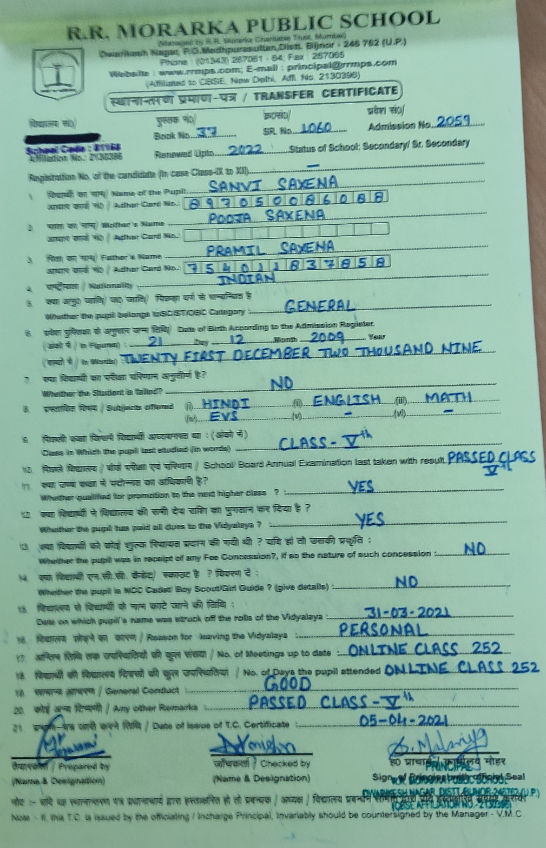 R.R. MORARKA PUBLIC SCHOOL
(Managed by R.R. Morarka Charitable Trust, Mumbai)
Dwarikesh Nagar, P.O.Medhpurasultan, Distt. Bijnor - 246 762 (U.P.)
Phone : (01343) 267061 - 64, Fax : 267065
Website : www.rrmps.com; E-mail : principal@rrmps.com
(Affiliated to CBSE, New Delhi, Affi. No. 2130396)
स्थानान्तरण प्रमाण-पत्र / TRANSFER CERTIFICATE
विद्यालय सं०/ पुस्तक सं०/ क्र०सं०/ प्रवेश सं०/
Book No. 37 SR. No. 1060 Admission No. 2059
School Code : 81168
Affiliation No.: 2130396 Renewed Upto 2022 Status of School: Secondary/ Sr. Secondary
Registration No. of the candidate (in case Class-IX to XII) –
1. विद्यार्थी का नाम/ Name of the Pupil SANVI SAXENA
आधार कार्ड नं०/ Adhar Card No.: 897050086088
2. माता का नाम/ Mother's Name POOJA SAXENA
आधार कार्ड नं०/ Adhar Card No.:
3. पिता का नाम/ Father's Name PRAMIL SAXENA
आधार कार्ड नं०/ Adhar Card No.: 754011837858
4. राष्ट्रीयता / Nationality INDIAN
5. क्या अनु० जाति/ जन० जाति/ पिछड़ा वर्ग से सम्बन्धित है
Whether the pupil belongs to SC/ST/OBC Category : GENERAL
6. प्रवेश पुस्तिका के अनुसार जन्म तिथि/ Date of Birth According to the Admission Register.
(अंको में / in Figures) : 21 Day 12 Month 2009 Year
(शब्दों में / in Words) TWENTY FIRST DECEMBER TWO THOUSAND NINE
7. क्या विद्यार्थी का परीक्षा परिणाम अनुत्तीर्ण है?
Whether the Student is failed? NO
8. प्रस्तावित विषय / Subjects offered (i) HINDI (ii) ENGLISH (iii) MATH
(iv) EVS (v) – (vi) –
9. पिछली कक्षा जिसमें विद्यार्थी अध्ययनरत था : (अंको में)
Class in Which the pupil last studied (in words) CLASS - Vth
10. पिछले विद्यालय / बोर्ड परीक्षा एवं परिणाम / School Board Annual Examination last taken with result. PASSED CLASS Vth
11. क्या उच्च कक्षा में पदोन्नत का अधिकारी है?
Whether qualified for promotion to the next higher class ? : YES
12. क्या विद्यार्थी ने विद्यालय की सभी देय राशि का भुगतान कर दिया है ?
Whether the pupil has paid all dues to the Vidyalaya ? : YES
13. क्या विद्यार्थी को कोई शुल्क रियायत प्रदान की गयी थी ? यदि हां तो उसकी प्रकृति :
Whether the pupil was in receipt of any Fee Concession?, if so the nature of such concession : NO
14. क्या विद्यार्थी एन.सी.सी. कैडेट/ स्काउट है ? विवरण दें :
Whether the pupil is NCC Cadet/ Boy Scout/Girl Guide ? (give details) : NO
15. विद्यालय से विद्यार्थी के नाम काटे जाने की तिथि :
Date on which pupil's name was struck off the rolls of the Vidyalaya : 31-03-2021
16. विद्यालय छोड़ने का कारण / Reason for leaving the Vidyalaya PERSONAL
17. अन्तिम तिथि तक उपस्थितियों की कुल संख्या / No. of Meetings up to date : ONLINE CLASS 252
18. विद्यार्थी की विद्यालय दिवसों की कुल उपस्थितियाँ / No. of Days the pupil attended ONLINE CLASS 252
19. सामान्य आचरण / General Conduct : GOOD
20. कोई अन्य टिप्पणी / Any other Remarks PASSED CLASS - Vth
21. प्रमाण-पत्र जारी करने तिथि / Date of Issue of T.C. Certificate 05-04-2021
तैयारकर्ता / Prepared by जाँचकर्ता / Checked by ह० प्राचार्य/ कार्यालय मोहर
(Name & Designation) (Name & Designation) Sign. of Principal with official Seal
PRINCIPAL
R.R. MORARKA PUBLIC SCHOOL
DWARIKESH NAGAR, DISTT. BIJNOR-246762 (U.P.)
(CBSE AFFILIATION NO.-2130396)
नोट :- यदि यह स्थानान्तरण पत्र प्रधानाचार्य द्वारा हस्ताक्षरित हो तो प्रबन्धक / अध्यक्ष / विद्यालय प्रबन्धन
Note :- If, this T.C. is issued by the officiating / Incharge Principal, Invariably should be countersigned by the Manager - V.M.C.